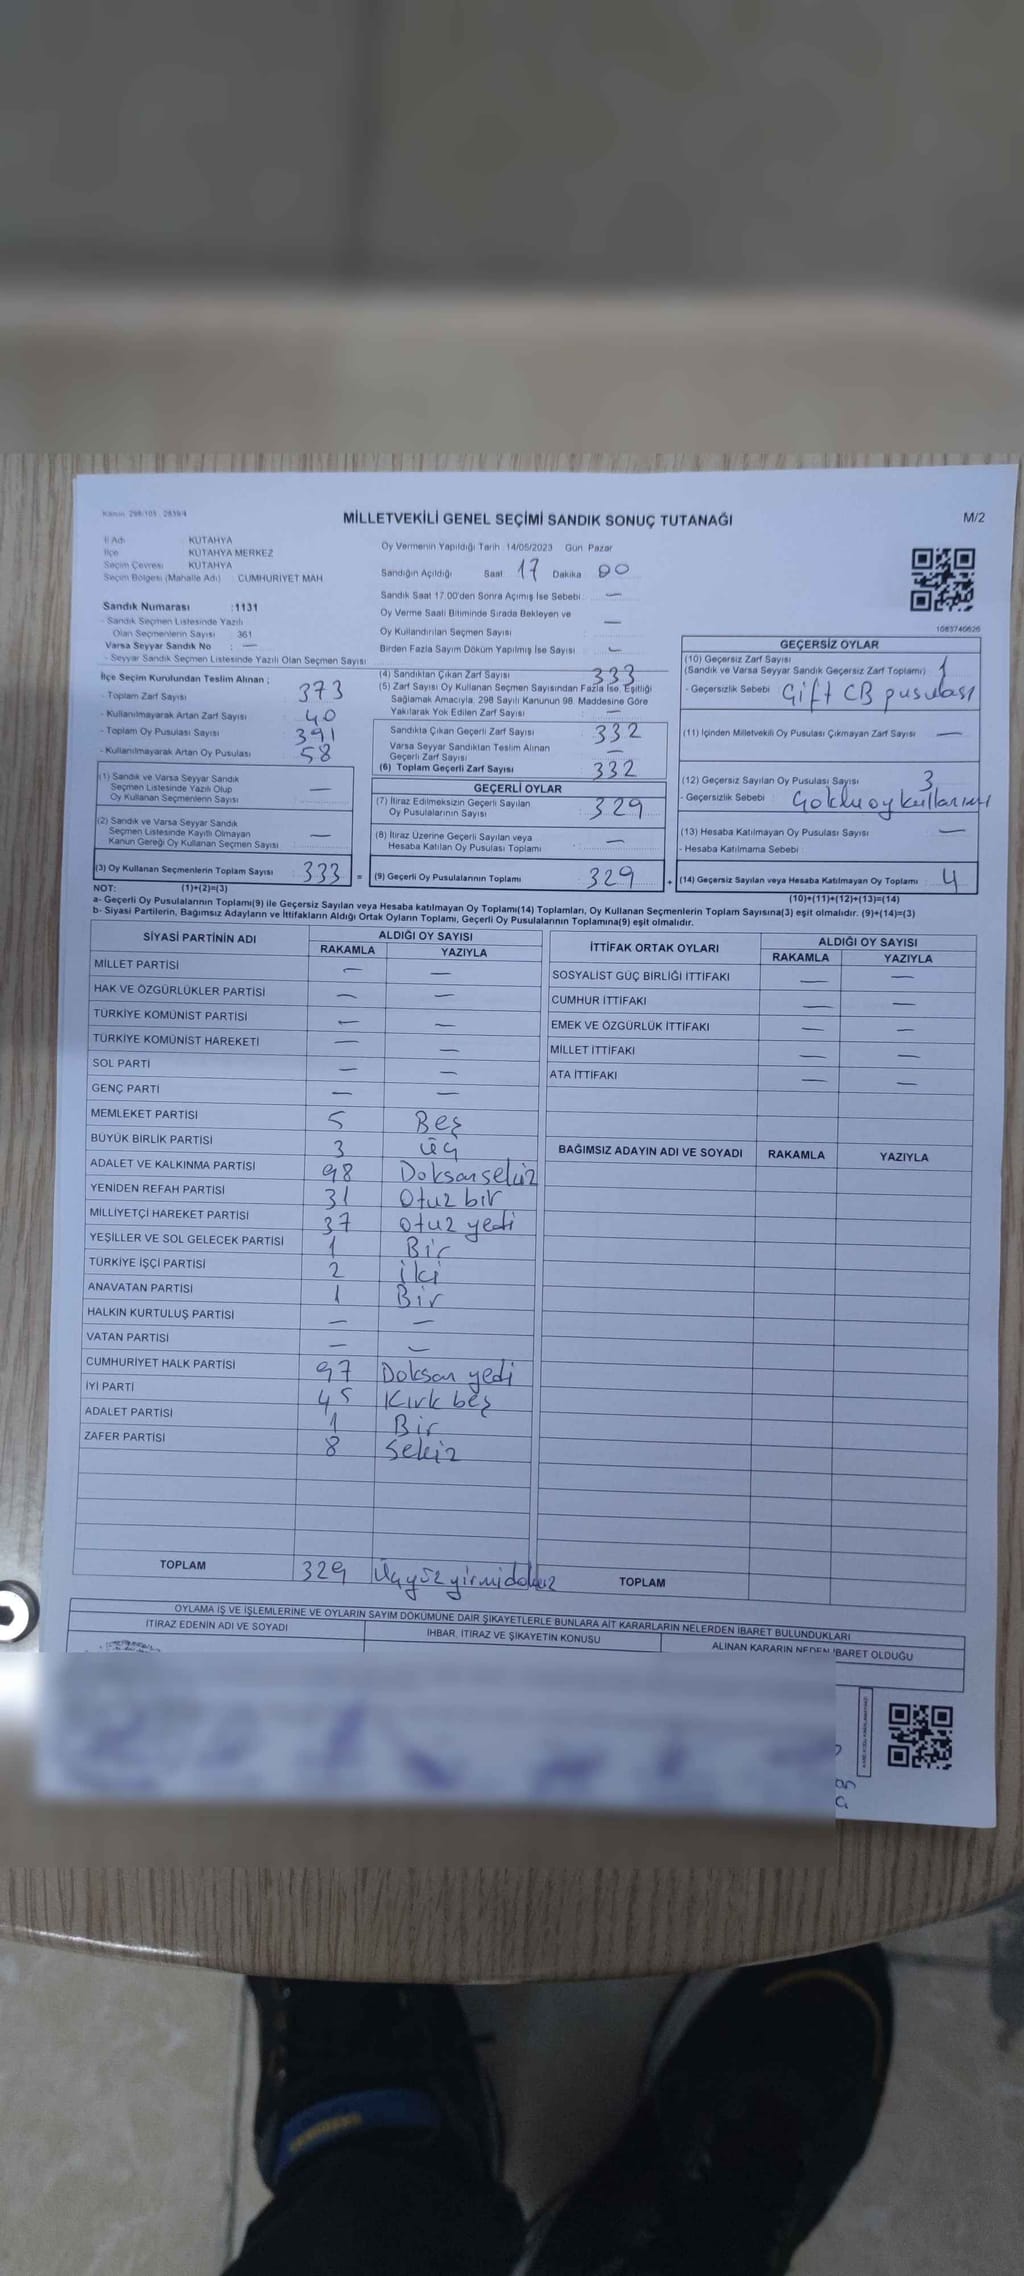 Kanun 298/105 - 2839/4
MİLLETVEKİLİ GENEL SEÇİMİ SANDIK SONUÇ TUTANAĞI
M/2
İl Adı : KÜTAHYA
İlçe : KÜTAHYA MERKEZ
Seçim Çevresi : KÜTAHYA
Seçim Bölgesi (Mahalle Adı) : CUMHURİYET MAH
Sandık Numarası :1131
- Sandık Seçmen Listesinde Yazılı
Olan Seçmenlerin Sayısı 361
Varsa Seyyar Sandık No : —
- Seyyar Sandık Seçmen Listesinde Yazılı Olan Seçmen Sayısı
Oy Vermenin Yapıldığı Tarih : 14/05/2023 Gün Pazar
Sandığın Açıldığı Saat 17 Dakika 00
Sandık Saat 17.00'den Sonra Açılmış İse Sebebi : —
Oy Verme Saati Bitiminde Sırada Bekleyen ve —
Oy Kullandırılan Seçmen Sayısı
Birden Fazla Sayım Döküm Yapılmış İse Sayısı : —
1083740626
İlçe Seçim Kurulundan Teslim Alınan ;
- Toplam Zarf Sayısı : 373
- Kullanılmayarak Artan Zarf Sayısı : 40
- Toplam Oy Pusulası Sayısı : 391
- Kullanılmayarak Artan Oy Pusulası : 58
(1) Sandık ve Varsa Seyyar Sandık
Seçmen Listesinde Yazılı Olup —
Oy Kullanan Seçmenlerin Sayısı
(2) Sandık ve Varsa Seyyar Sandık
Seçmen Listesinde Kayıtlı Olmayan —
Kanun Gereği Oy Kullanan Seçmen Sayısı :
(3) Oy Kullanan Seçmenlerin Toplam Sayısı : 333 =
(4) Sandıktan Çıkan Zarf Sayısı : 333
(5) Zarf Sayısı Oy Kullanan Seçmen Sayısından Fazla İse, Eşitliği
Sağlamak Amacıyla, 298 Sayılı Kanunun 98. Maddesine Göre
Yakılarak Yok Edilen Zarf Sayısı : —
Sandıkta Çıkan Geçerli Zarf Sayısı : 332
Varsa Seyyar Sandıktan Teslim Alınan —
Geçerli Zarf Sayısı
(6) Toplam Geçerli Zarf Sayısı 332
GEÇERLİ OYLAR
(7) İtiraz Edilmeksizin Geçerli Sayılan
Oy Pusulalarının Sayısı : 329
(8) İtiraz Üzerine Geçerli Sayılan veya
Hesaba Katılan Oy Pusulası Toplamı : —
(9) Geçerli Oy Pusulalarının Toplamı : 329 +
GEÇERSİZ OYLAR
(10) Geçersiz Zarf Sayısı
(Sandık ve Varsa Seyyar Sandık Geçersiz Zarf Toplamı) : 1
- Geçersizlik Sebebi : Çift CB pusulası
(11) İçinden Milletvekili Oy Pusulası Çıkmayan Zarf Sayısı : —
(12) Geçersiz Sayılan Oy Pusulası Sayısı : 3
- Geçersizlik Sebebi :
(13) Hesaba Katılmayan Oy Pusulası Sayısı : —
- Hesaba Katılmama Sebebi :
(14) Geçersiz Sayılan veya Hesaba Katılmayan Oy Toplamı : 4
NOT: (1)+(2)=(3)
(10)+(11)+(12)+(13)=(14)
a- Geçerli Oy Pusulalarının Toplamı(9) ile Geçersiz Sayılan veya Hesaba katılmayan Oy Toplamı(14) Toplamları, Oy Kullanan Seçmenlerin Toplam Sayısına(3) eşit olmalıdır. (9)+(14)=(3)
b- Siyasi Partilerin, Bağımsız Adayların ve İttifakların Aldığı Ortak Oyların Toplamı, Geçerli Oy Pusulalarının Toplamına(9) eşit olmalıdır.
SİYASİ PARTİNİN ADI ALDIĞI OY SAYISI
RAKAMLA YAZIYLA
MİLLET PARTİSİ — —
HAK VE ÖZGÜRLÜKLER PARTİSİ — —
TÜRKİYE KOMÜNİST PARTİSİ — —
TÜRKİYE KOMÜNİST HAREKETİ — —
SOL PARTİ — —
GENÇ PARTİ — —
MEMLEKET PARTİSİ 5 Beş
BÜYÜK BİRLİK PARTİSİ 3 üç
ADALET VE KALKINMA PARTİSİ 98 Doksan sekiz
YENİDEN REFAH PARTİSİ 31 Otuz bir
MİLLİYETÇİ HAREKET PARTİSİ 37 otuz yedi
YEŞİLLER VE SOL GELECEK PARTİSİ 1 Bir
TÜRKİYE İŞÇİ PARTİSİ 2 iki
ANAVATAN PARTİSİ 1 Bir
HALKIN KURTULUŞ PARTİSİ — —
VATAN PARTİSİ — —
CUMHURİYET HALK PARTİSİ 97 Doksan yedi
İYİ PARTİ 45 Kırk beş
ADALET PARTİSİ 1 Bir
ZAFER PARTİSİ 8 Sekiz
TOPLAM 329 Üçyüz yirmi dokuz
İTTİFAK ORTAK OYLARI ALDIĞI OY SAYISI
RAKAMLA YAZIYLA
SOSYALİST GÜÇ BİRLİĞİ İTTİFAKI — —
CUMHUR İTTİFAKI — —
EMEK VE ÖZGÜRLÜK İTTİFAKI — —
MİLLET İTTİFAKI — —
ATA İTTİFAKI — —
BAĞIMSIZ ADAYIN ADI VE SOYADI RAKAMLA YAZIYLA
TOPLAM
OYLAMA İŞ VE İŞLEMLERİNE VE OYLARIN SAYIM DÖKÜMÜNE DAİR ŞİKAYETLERLE BUNLARA AİT KARARLARIN NELERDEN İBARET BULUNDUKLARI
İTİRAZ EDENİN ADI VE SOYADI
İHBAR, İTİRAZ VE ŞİKAYETİN KONUSU
ALINAN KARARIN NEDEN İBARET OLDUĞU